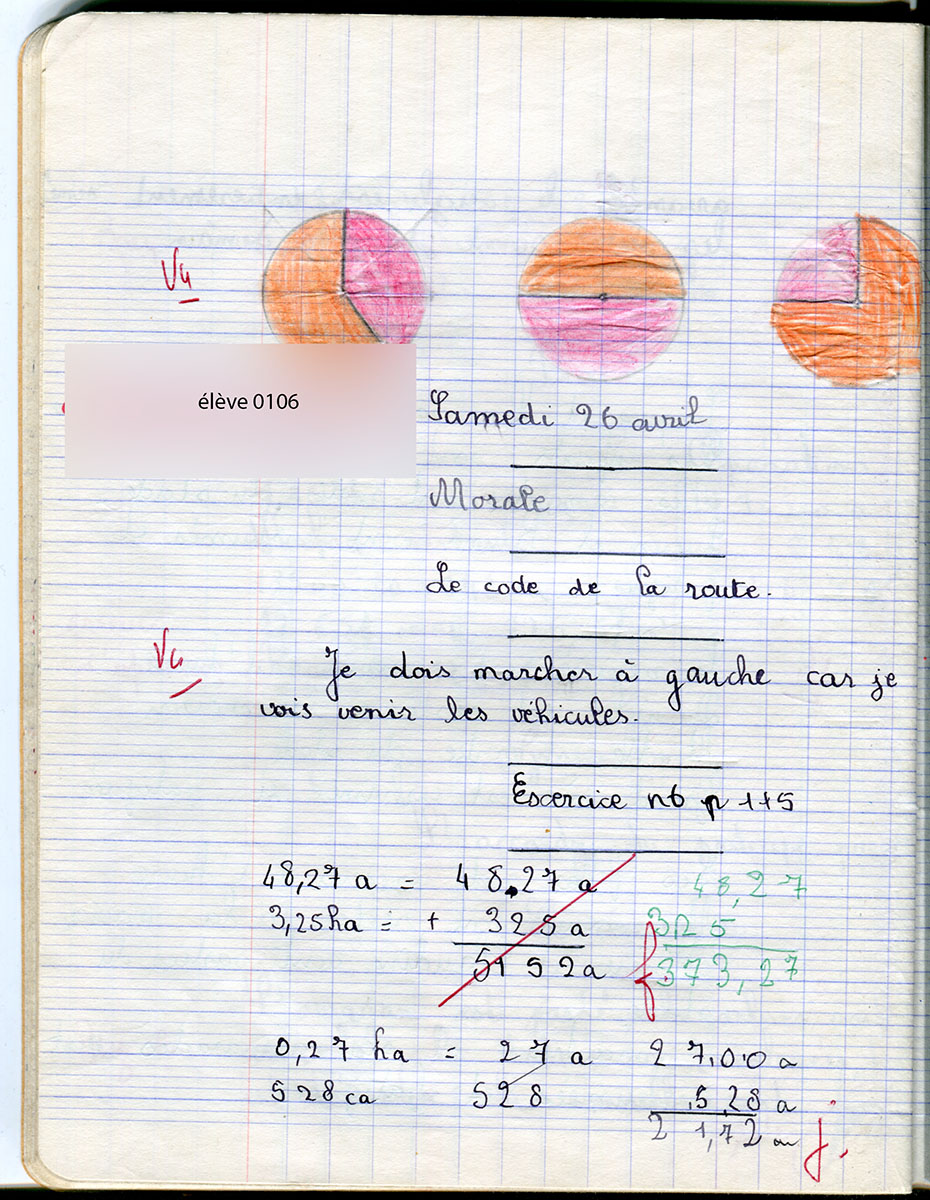 Vu
élève 0106
Samedi 26 avril
Morale
Le code de la route.
Vu
Je dois marcher à gauche car je
vois venir les véhicules.
Excercice n6 p 175
48,27 a = 48,27 a 48,27
3,25 ha = + 325 a 325
5152 a f 373,27
0,27 ha = 27 a 27,00 a
528 ca 528 5,28 a
21,72 a j.